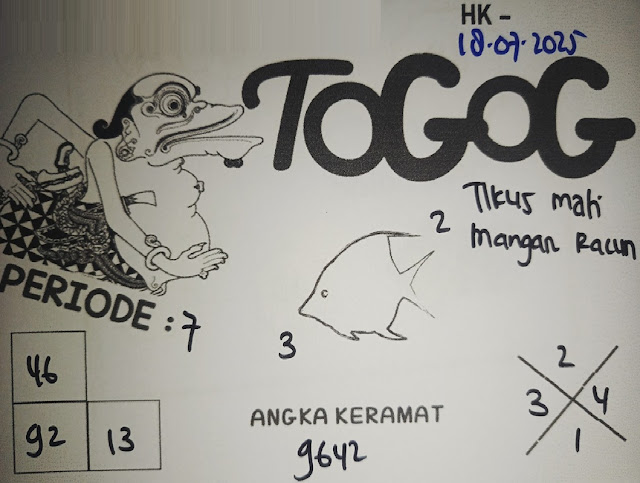 HK -
18.07.2025
TOGOG
Tikus mati
mangan Racun
PERIODE : 7
2
3
46
92 13
ANGKA KERAMAT
9642
2
3 4
1